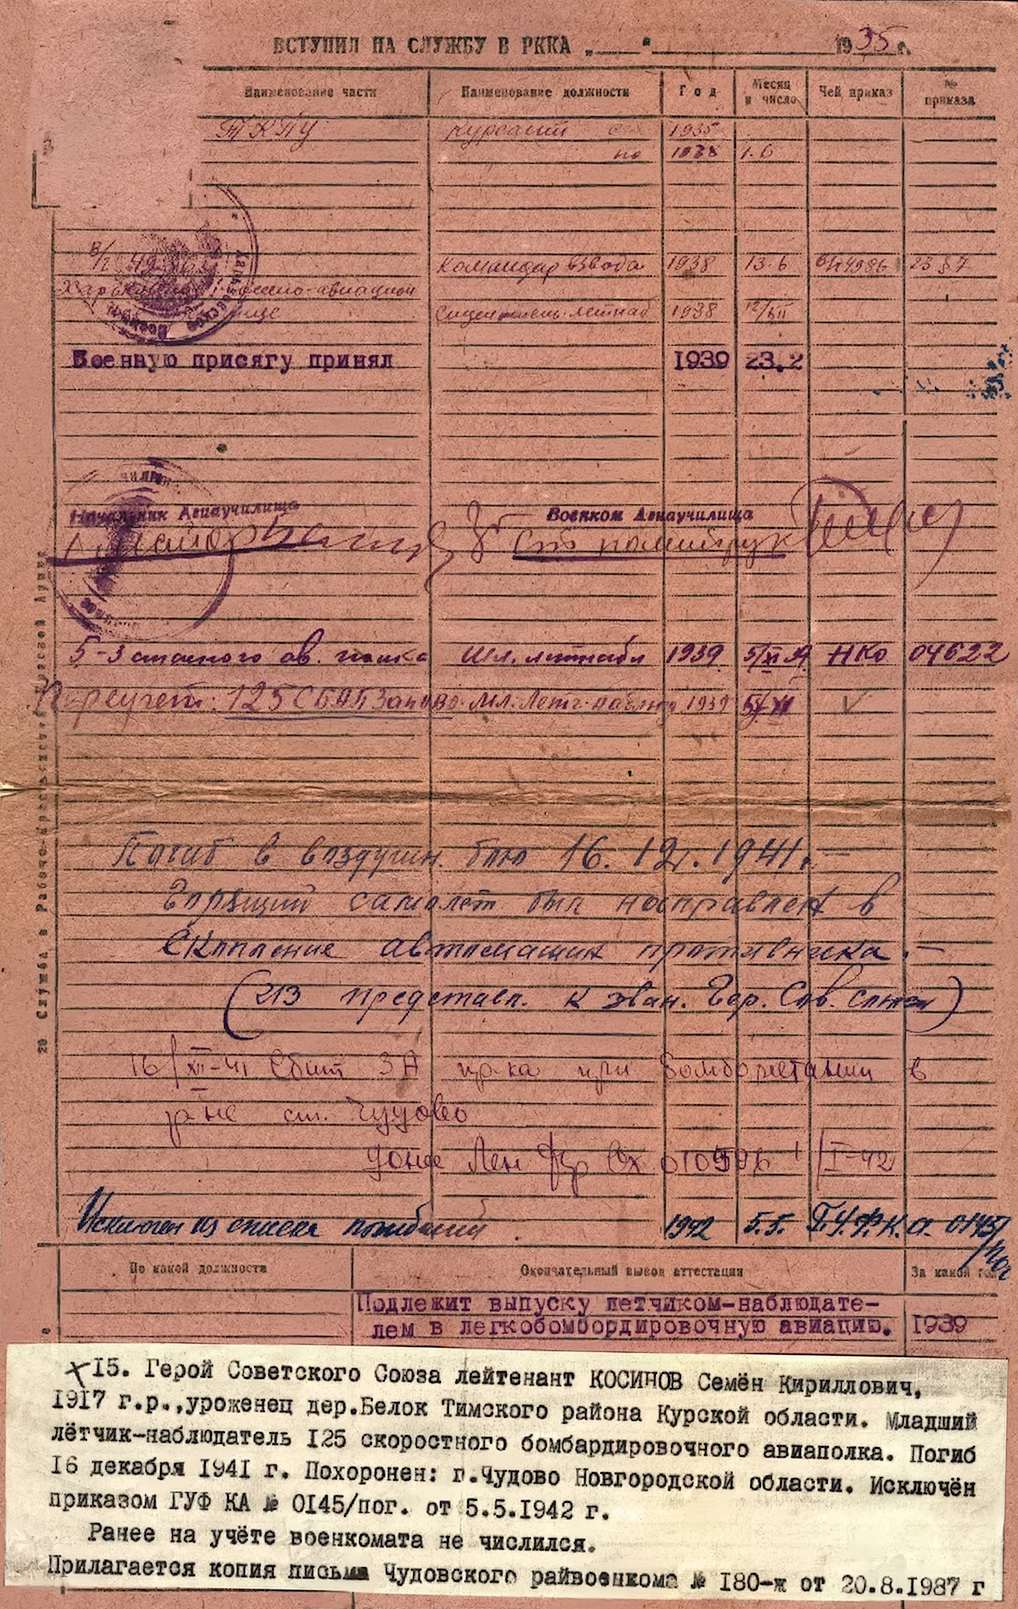 ВСТУПИЛ НА СЛУЖБУ В РККА „ " 1935 г.
Наименование части Наименование должности Год Месяц и число Чей приказ № приказа
ТКПУ курсант с 1935
по 1938 1.6
в/ч командир взвода 1938 13.6 23 87
военно-авиацион
летнаб 1938 12/XII
Военную присягу принял 1939 23.2
Начальник Авиаучилища Военком Авиаучилища
майор политрук
5-З ав. полка мл. летнаб 1939 5/XI НКО 04622
Переучет: 125 СБАП Зап ВО. мл. Летч. наблюд 1939 5/XI
20 Служба в Рабоче-Крестьянской Красной Армии
Погиб в воздушн. бою 16.12.1941. —
Горящий самолет был направлен в
скопление автомашин противника. —
(213 представл. к зван. Гер. Сов. Союза)
16/XII-41 Сбит ЗА пр-ка при бомбометании в
р-не ст. Чудово
донес Лен фр Вх 010596 1/I-42
Исключен из списка погибший 1942 5.5. ГУФКА 0145/пог
По какой должности Окончательный вывод аттестации За какой год
Подлежит выпуску летчиком-наблюдате-
лем в легкобомбордировочную авиацию. 1939
15. Герой Советского Союза лейтенант КОСИНОВ Семён Кириллович,
1917 г.р.,уроженец дер.Белок Тимского района Курской области. Младший
лётчик-наблюдатель 125 скоростного бомбардировочного авиаполка. Погиб
16 декабря 1941 г. Похоронен: г.Чудово Новгородской области. Исключён
приказом ГУФ КА № 0145/пог. от 5.5.1942 г.
Ранее на учёте военкомата не числился.
Прилагается копия письма Чудовского райвоенкома № 180-ж от 20.8.1987 г